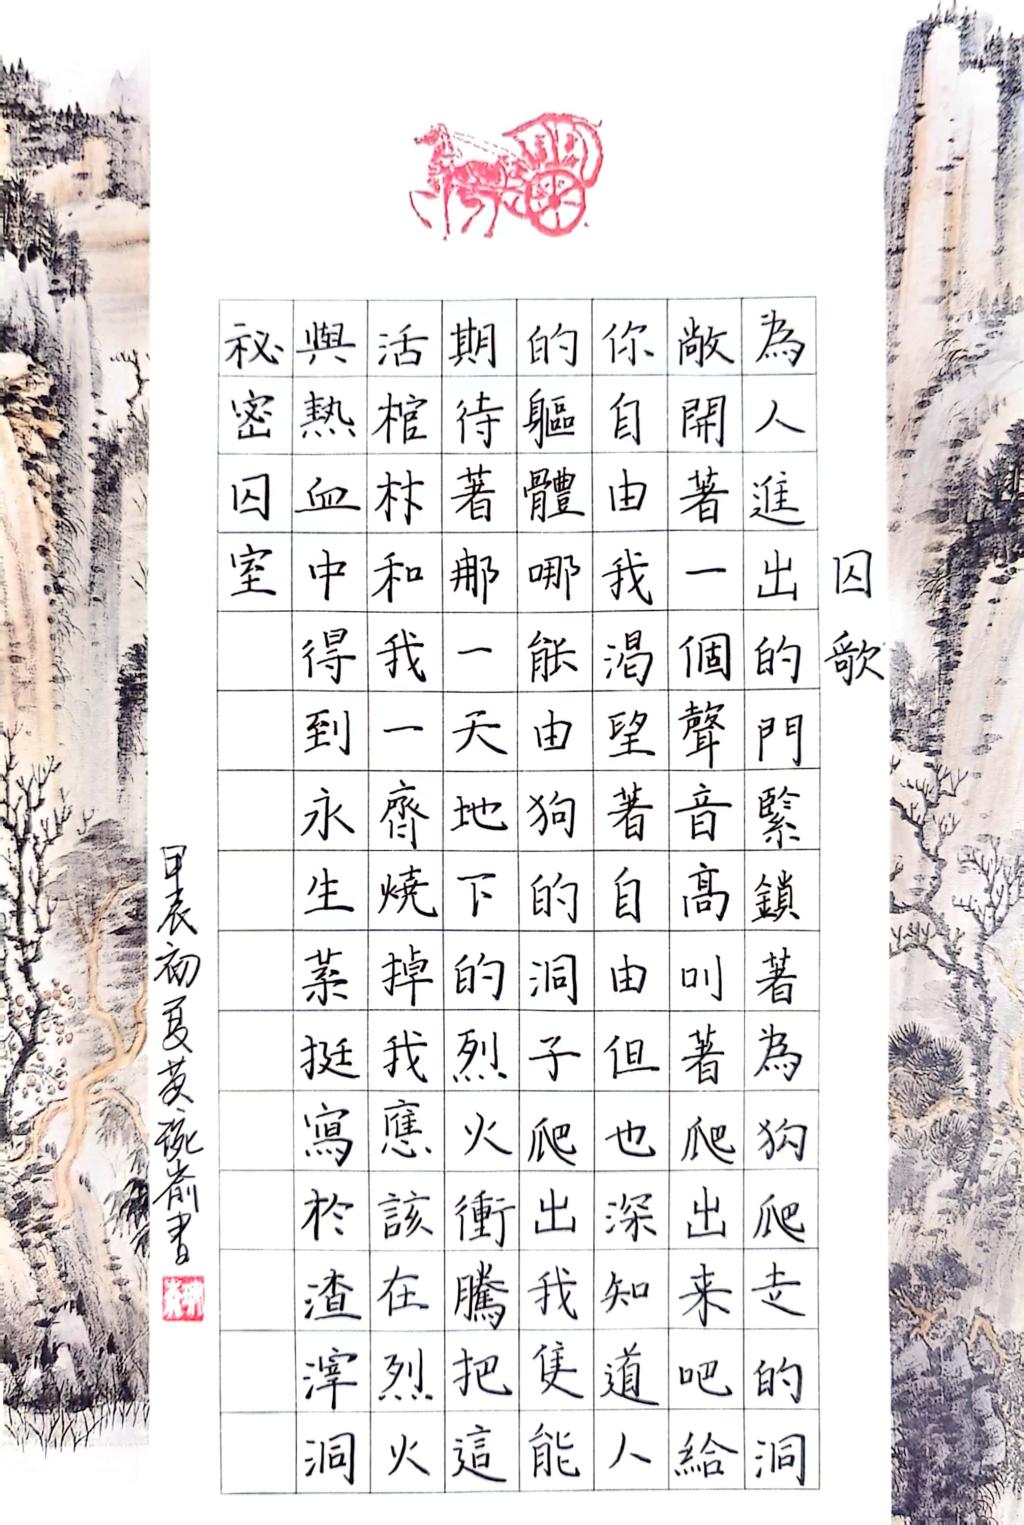 囚歌
為人進出的門緊鎖著為狗爬走的洞
敞開著一個聲音高叫著爬出来吧給
你自由我渴望著自由但也深知道人
的軀體哪能由狗的洞子爬出我隻能
期待著那一天地下的烈火衝騰把這
活棺材和我一齊燒掉我應該在烈火
與熱血中得到永生葉挺寫於渣滓洞
秘密囚室
甲辰初夏黄琬崳書